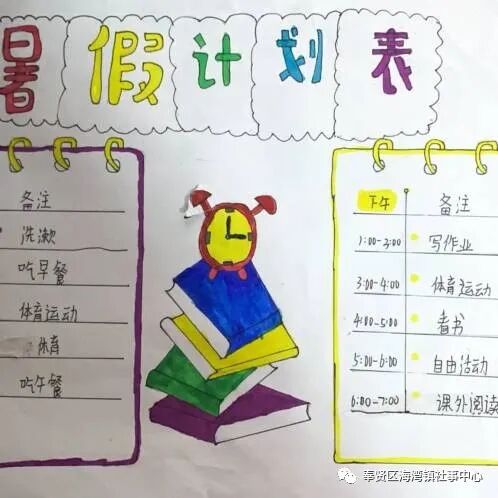 暑假计划表
备注
洗漱
吃早餐
体育运动
体育
吃午餐
下午 备注
1:00-3:00 写作业
3:00-4:00 体育运动
4:00-5:00 看书
5:00-6:00 自由活动
6:00-7:00 课外阅读
奉贤区海湾镇社事中心